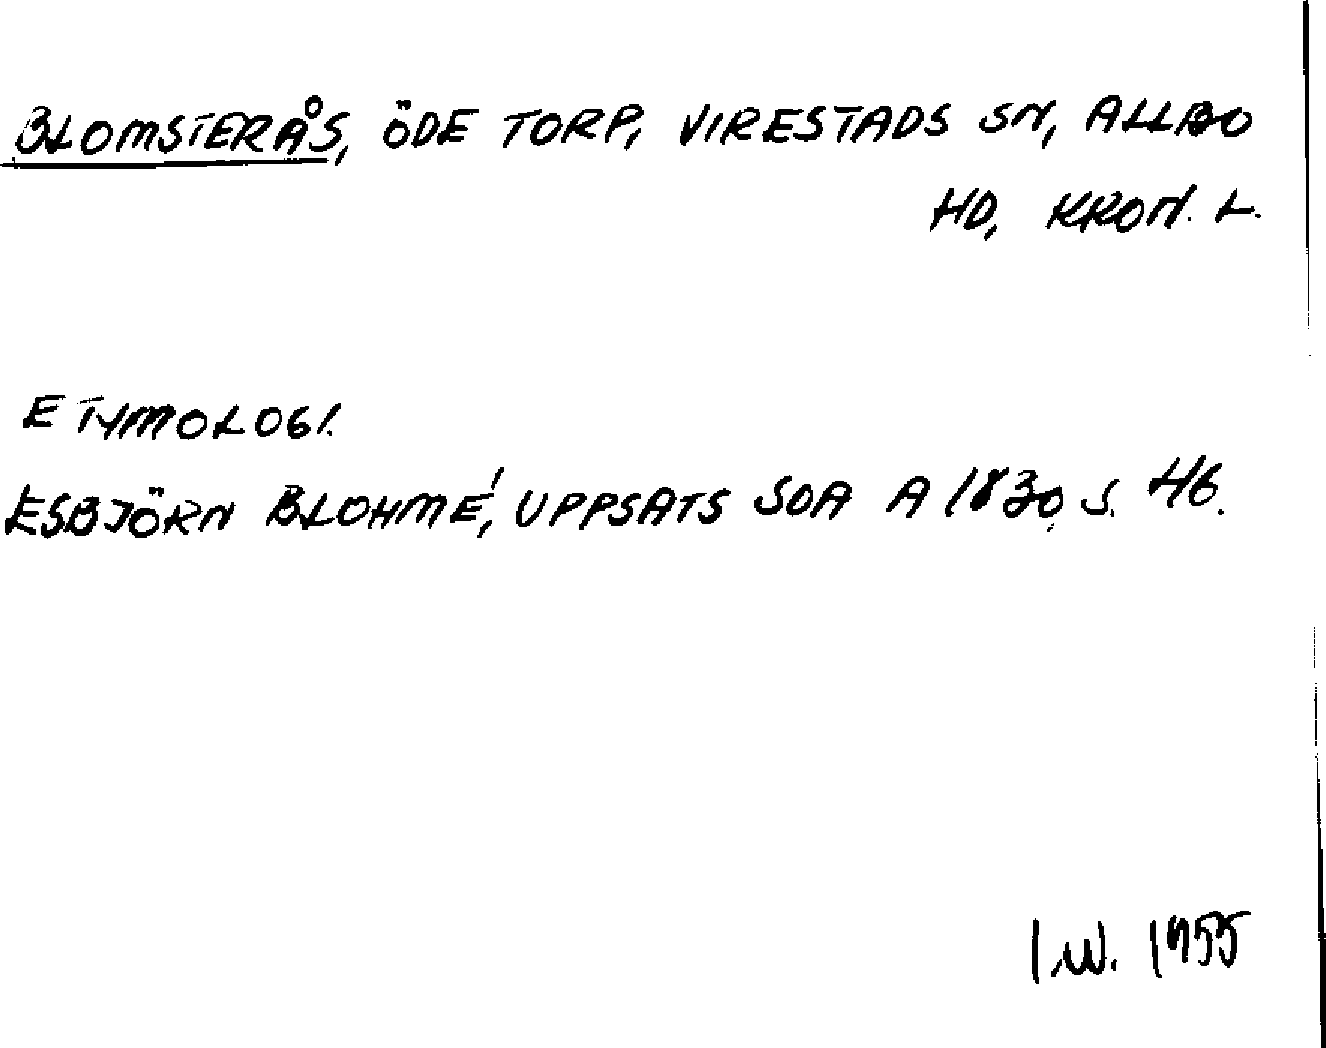 BLOMSTERÅS, ÖDE TORP, VIRESTADS SN, ALLBO
HD, KRON. L.
ETYMOLOGI.
ESBJÖRN BLOHMÉ, UPPSATS SOA A 1830, S. 46.
I.W. 1955